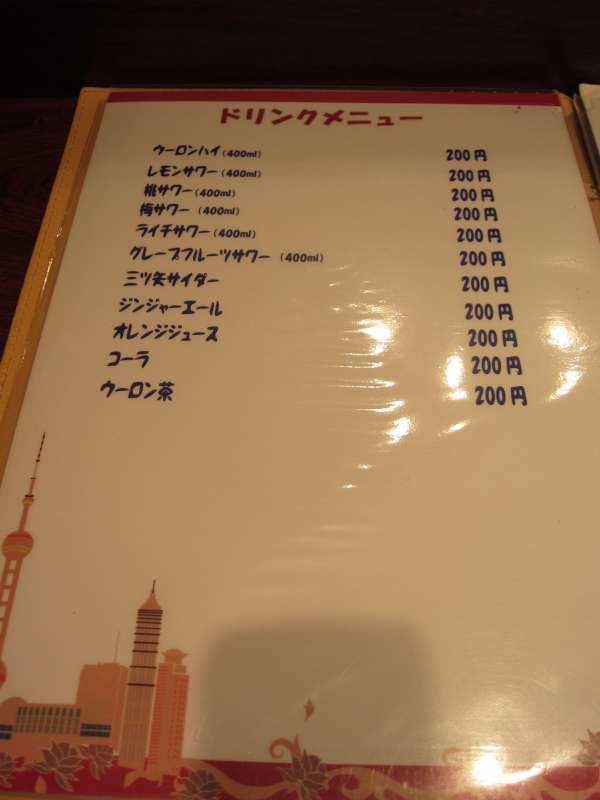 ドリンクメニュー
ウーロンハイ(400ml) 200円
レモンサワー(400ml) 200円
桃サワー(400ml) 200円
梅サワー (400ml) 200円
ライチサワー(400ml) 200円
グレープフルーツサワー (400ml) 200円
三ツ矢サイダー 200円
ジンジャーエール 200円
オレンジジュース 200円
コーラ 200円
ウーロン茶 200円